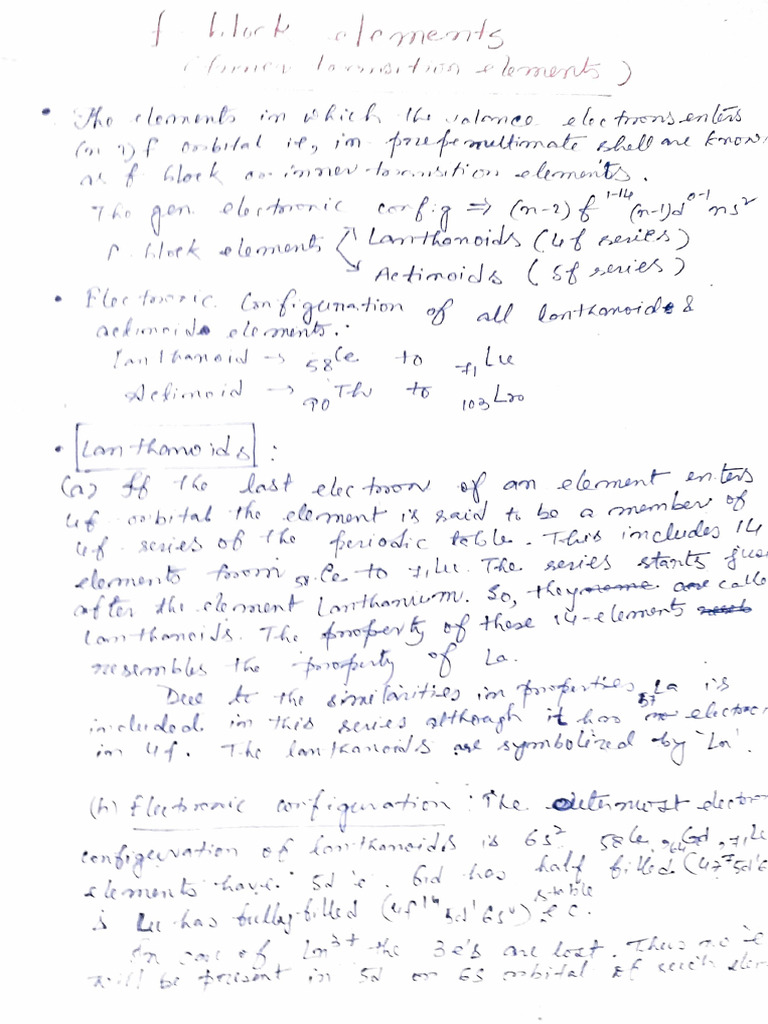 f block elements
(Inner transition elements)
• The elements in which the valance electrons enters
(n-2) f orbital ie, in prepenultimate shell are know
as f block or inner-transition elements.
The gen electronic config ⇒ (n-2) f¹⁻¹⁴ (n-1)d⁰⁻¹ ns²
f block elements Lanthanoids (4f series)
Actinoids (5f series)
• Electronic Configuration of all lanthanoids &
actinoids elements.
Lanthanoid → ₅₈Ce to ₇₁Lu
Actinoid → ₉₀Th to ₁₀₃Lr
• Lanthanoids :
(a) If the last electron of an element enters
4f orbital the element is said to be a member of
4f series of the periodic table. This includes 14
elements from ₅₈Ce to ₇₁Lu. The series starts jus
after the element Lanthanum. So, they are calle
lanthanoids. The property of these 14-elements
resembles the property of La.
Due to the similarities in properties ₅₇La is
included in this series although it has no electro
in 4f. The lanthanoids are symbolized by 'Ln'.
(b) Electronic configuration : The outermost electro
configuration of lanthanoids is 6s² ₅₈Ce, ₆₄Gd, ₇₁L
elements have 5d ¹e. Gd has half filled (4f⁷5d¹6
& Lu has fully-filled (4f¹⁴ 5d¹ 6s²) stable e c.
In case of Ln³⁺ the 3e's are lost. Thus no e
will be present in 5d or 6s orbital of such elem